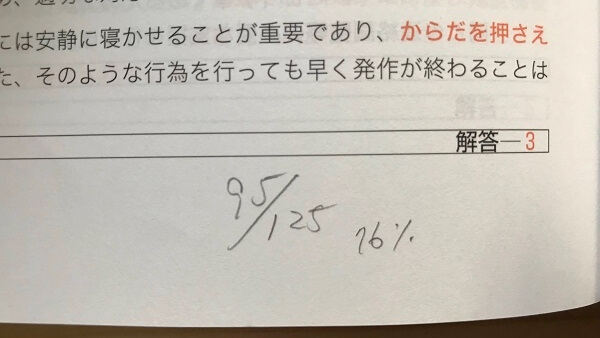 には安静に寝かせることが重要であり、からだを押さえ
た、そのような行為を行っても早く発作が終わることは
解答―3
95/125 76%